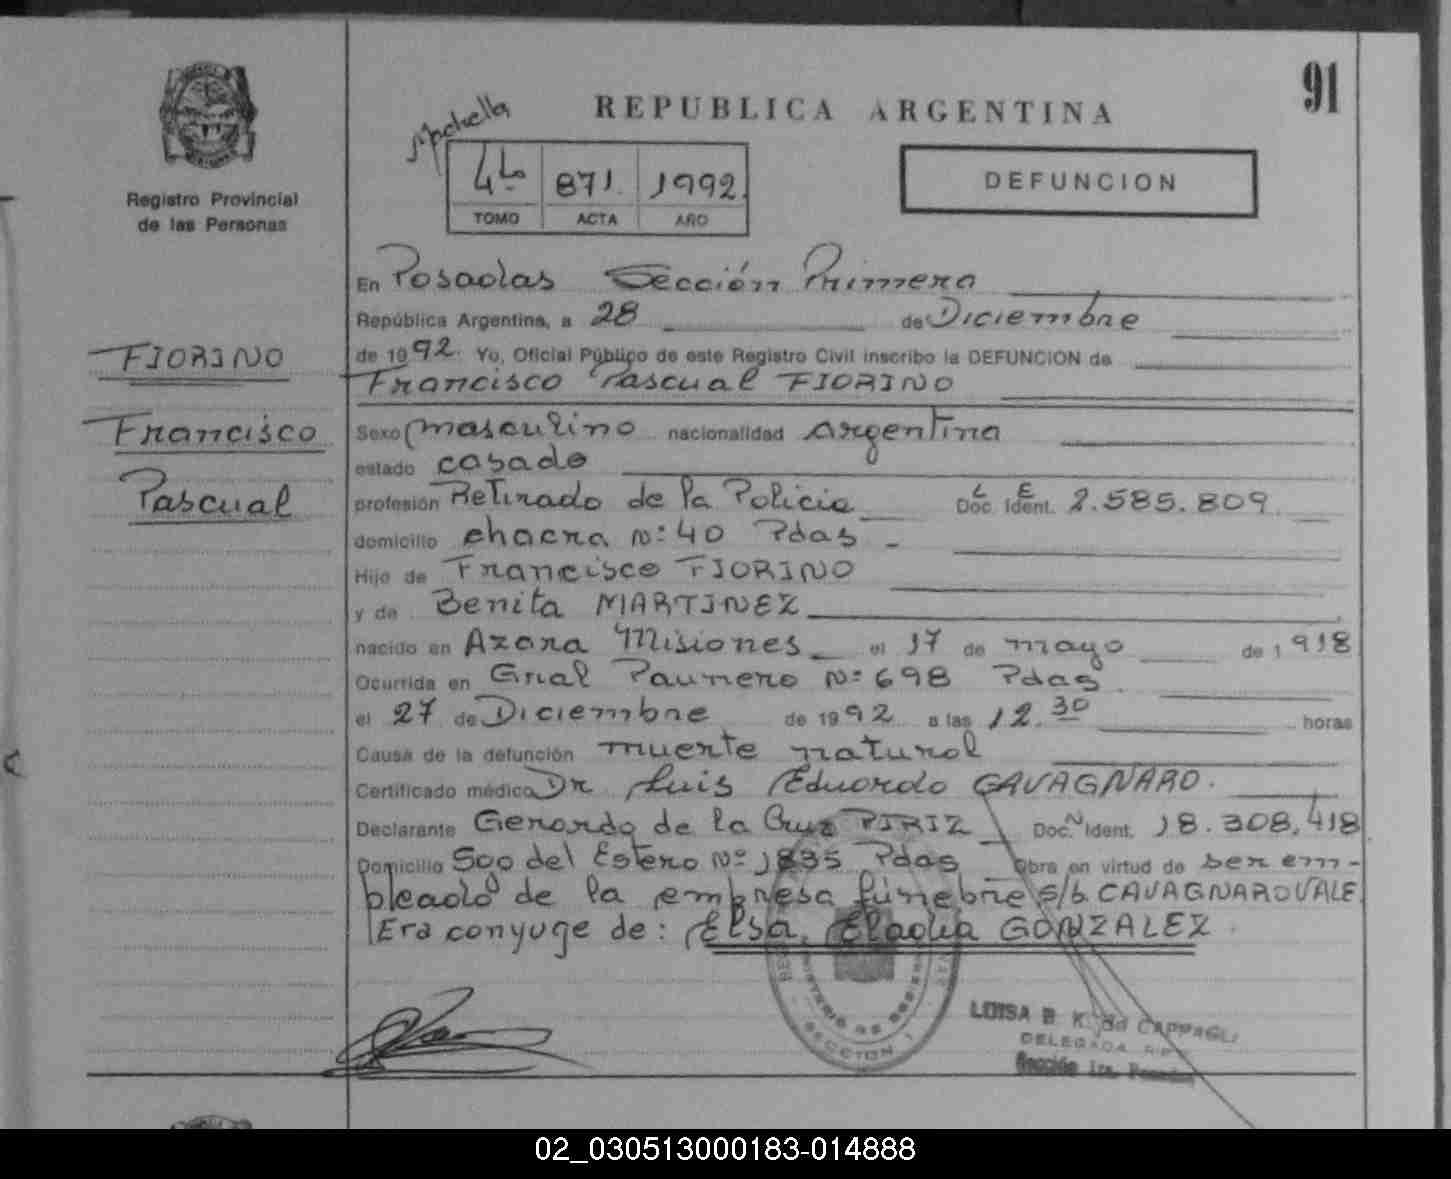 91
REPUBLICA ARGENTINA
Registro Provincial
de las Personas
4to 871. 1992.
TOMO ACTA AÑO
DEFUNCION
En Posadas Sección Primera
República Argentina, a 28 de Diciembre
de 1992. Yo, Oficial Público de este Registro Civil inscribo la DEFUNCION de
Francisco Pascual FIORINO
FIORINO
Francisco
Pascual
Sexo masculino nacionalidad Argentina
estado casado
profesión Retirado de la Policia Doc. Ident. L E 2.585.809
domicilio chacra Nº 40 Pdas -
Hijo de Francisco FIORINO
y de Benita MARTINEZ
nacido en Azara Misiones el 17 de mayo de 1918
Ocurrida en Gral Paunero Nº 698 Pdas.
el 27 de Diciembre de 1992 a las 12.30 horas
Causa de la defunción muerte natural
Certificado médico Dr Luis Eduardo CAVAGNARO.
Declarante Gerardo de la Cruz PIRIZ Doc. N Ident. 18.308.418
Domicilio Sgo del Estero Nº 1835 Pdas Obra en virtud de ser em-
pleado de la empresa fúnebre s/b. CAVAGNAROVALE.
Era conyuge de: Elsa Eladia GONZALEZ.
SECCION 1
LUISA B. K. de CAPPAGLI
DELEGADA R.P.
Sección 1ra. Posadas
02_030513000183-014888